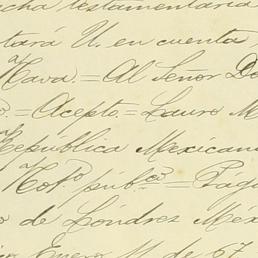 cha testamentaria
tará U. en cuenta
Hava.= Al Señor Do
o.= Acepto.= Lauro M
República Mexican
Not.o púb.co = Págu
o de Londres Méx
Enero 11 de 67